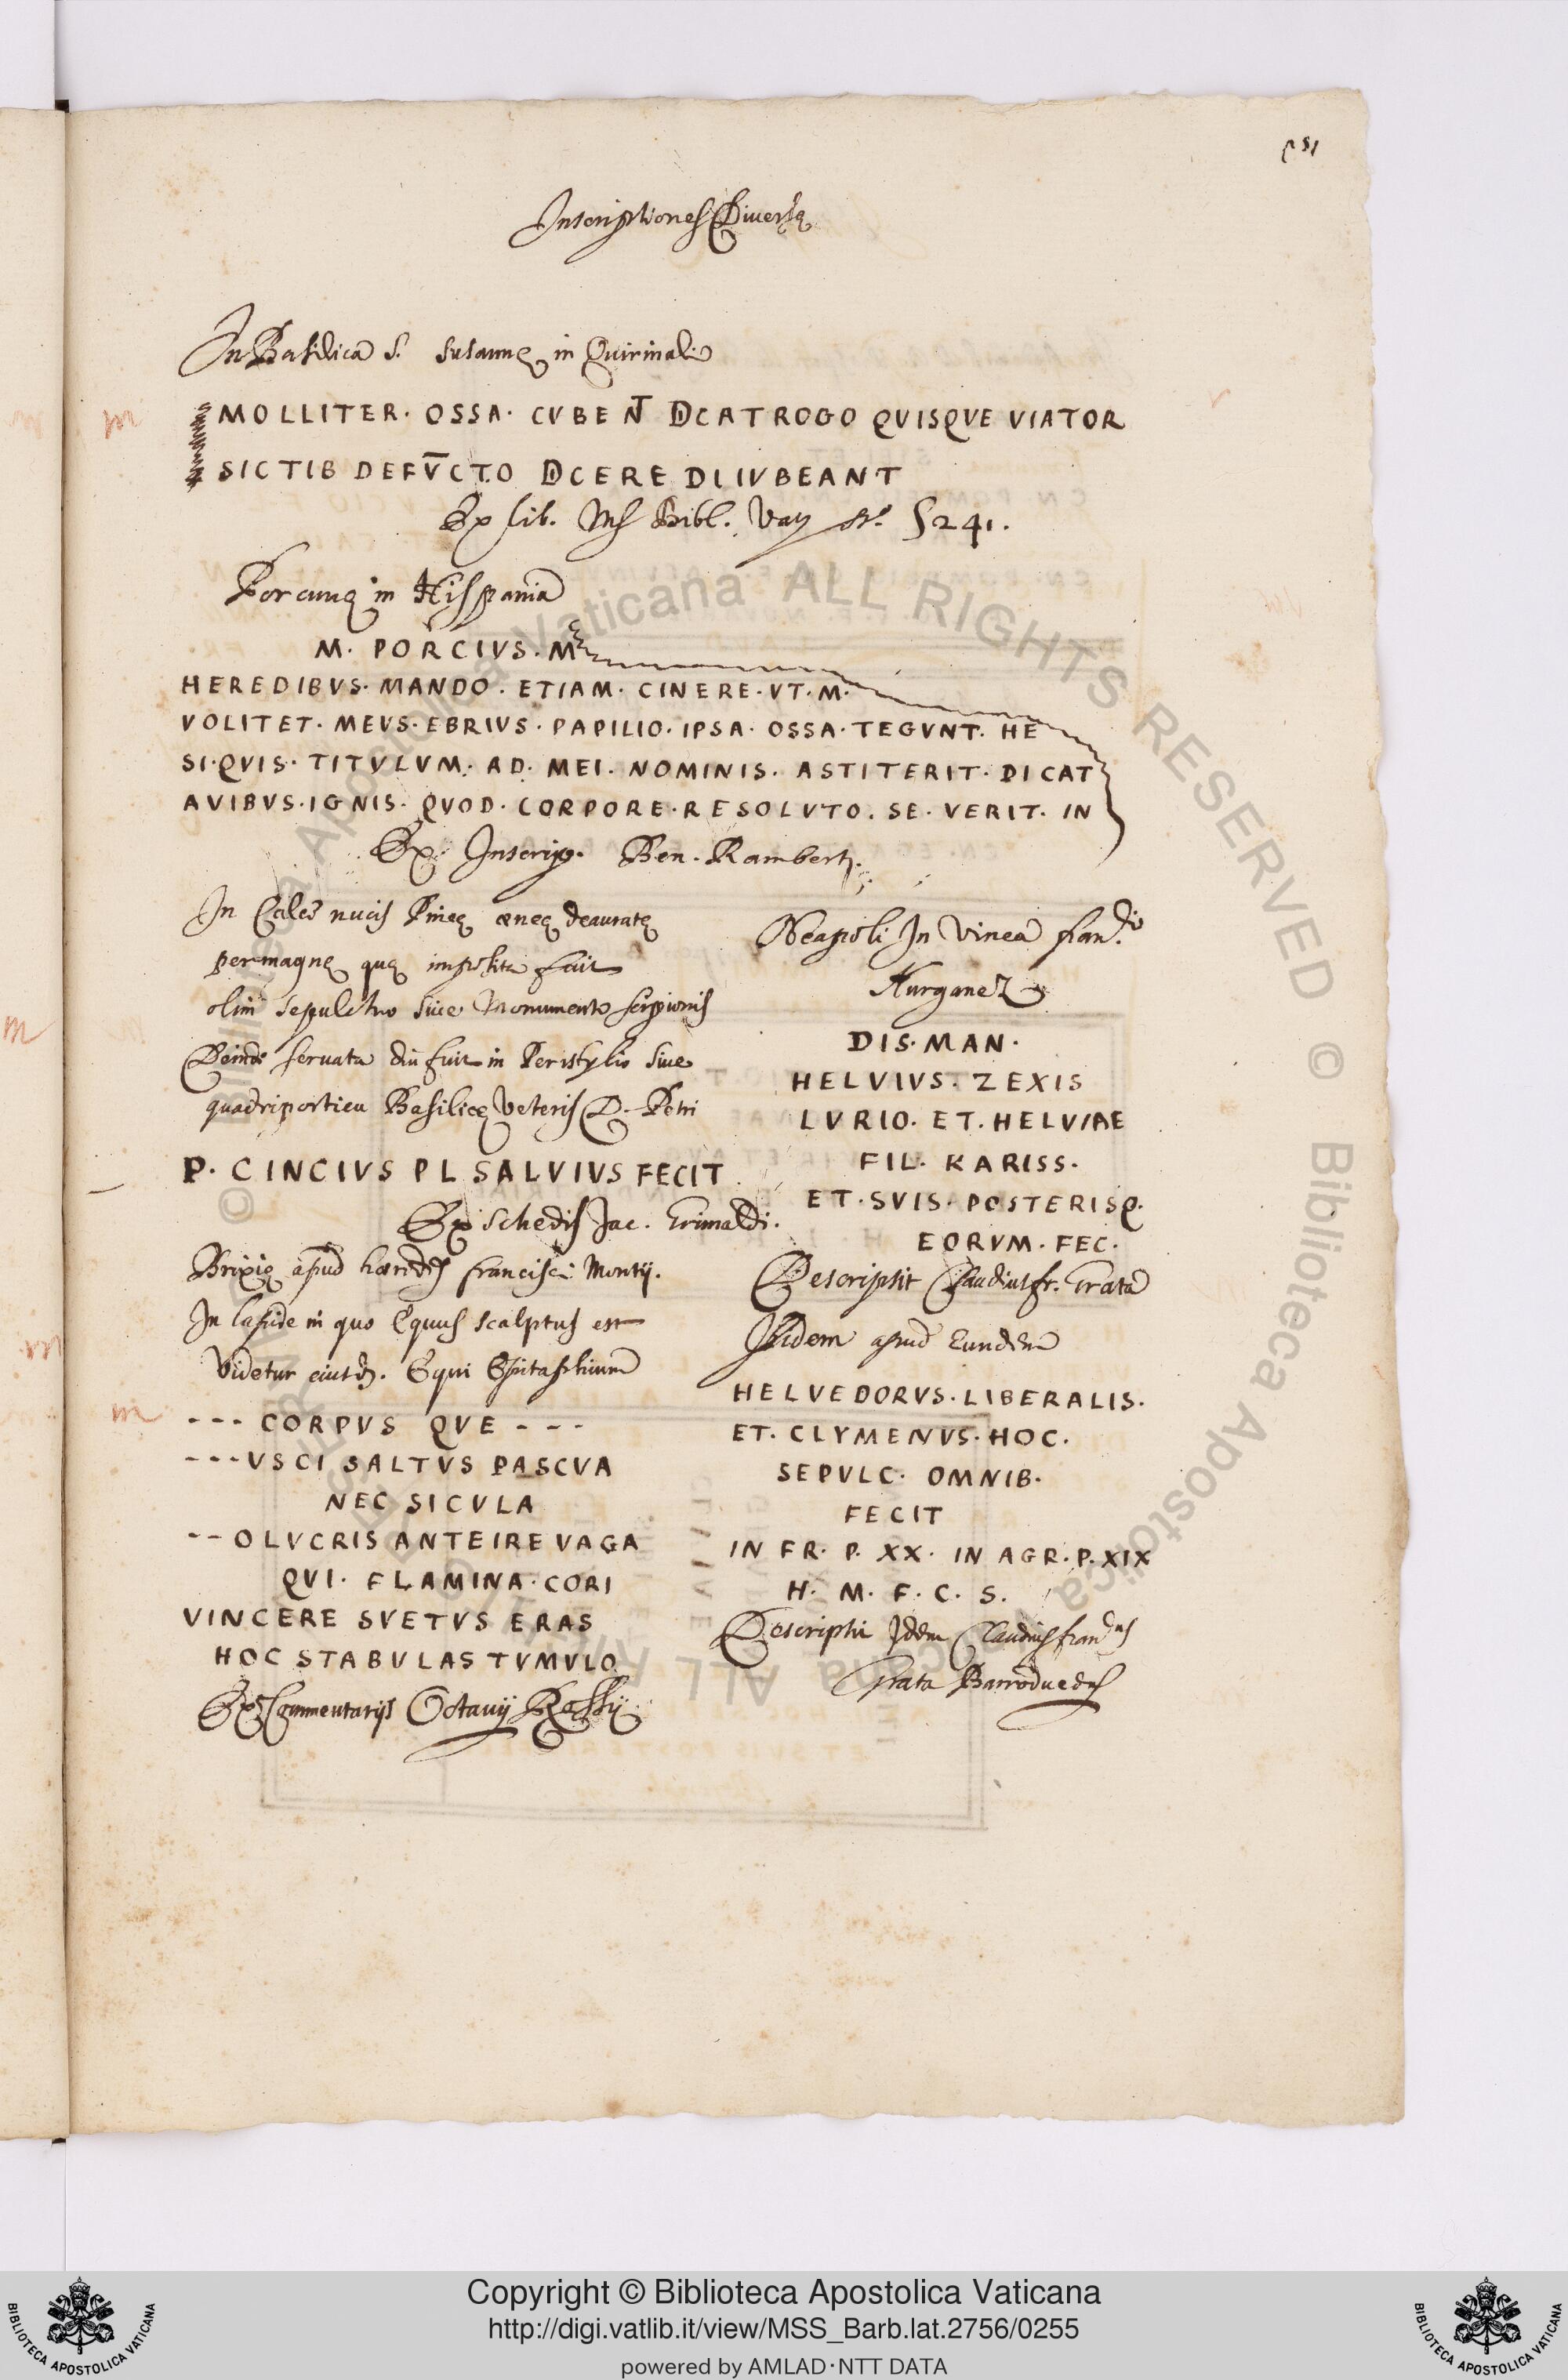 Inscriptiones Diuersę
In Basilica S. Susannę in Quirinali
MOLLITER. OSSA. CVBENT DCATROGO QVISQVE VIATOR
SICTIB DEFV̄CTO DCERE DIIVBEANT
Ex lib. Ms Bibl. Vat 5241.
Porcunę in Hispania
M. PORCIVS. M
HEREDIBVS. MANDO. ETIAM. CINERE. VT. M.
VOLITET. MEVS. EBRIVS. PAPILIO. IPSA. OSSA. TEGVNT. HE
SI. QVIS. TITVLVM. AD. MEI. NOMINIS. ASTITERIT. DICAT
AVIBVS. IGNIS. QVOD. CORPORE. RESOLVTO. SE. VERIT. IN
Ex Inscrip. Ben. Ramberti.
In Calce nucis Pineę ęneę deauratę
permagnę quę imposita fuit
olim sepulchro siue Monumento scipionis
Deinde seruata diu fuit in Peristylio siue
quadriporticu Basilicę Veteris D. Petri
P. CINCIVS PL SALVIVS FECIT
Ex schedis Jac. Grimaldi.
Brixię apud hæredes francisci Montij.
In lapide in quo Equus scalptus est
Videtur eiusd. Equi Epitaphium
--- CORPVS QVE ---
--- VSCI SALTVS PASCVA
NEC SICVLA
-- OLVCRIS ANTEIRE VAGA
QVI. FLAMINA. CORI
VINCERE SVETVS ERAS
HOC STABVLAS TVMVLO
Ex Commentarijs Octauij Rossij
Neapoli In Vinea
DIS. MAN.
HELVIVS. ZEXIS
LVRIO. ET. HELVIAE
FIL. KARISS.
ET. SVIS. POSTERISQ.
EORVM. FEC.
Descripsit Claudius fr. Grata
Ibidem apud Eundem
HELVEDORVS. LIBERALIS.
ET. CLYMENVS. HOC.
SEPVLC. OMNIB.
FECIT
IN FR. P. XX. IN AGR. P. XIX
H. M. F. C. S.
Descripsit Idem Claudius
Grata
Copyright © Biblioteca Apostolica Vaticana
http://digi.vatlib.it/view/MSS_Barb.lat.2756/0255
powered by AMLAD·NTT DATA
BIBLIOTECA APOSTOLICA VATICANA
BIBLIOTECA APOSTOLICA VATICANA